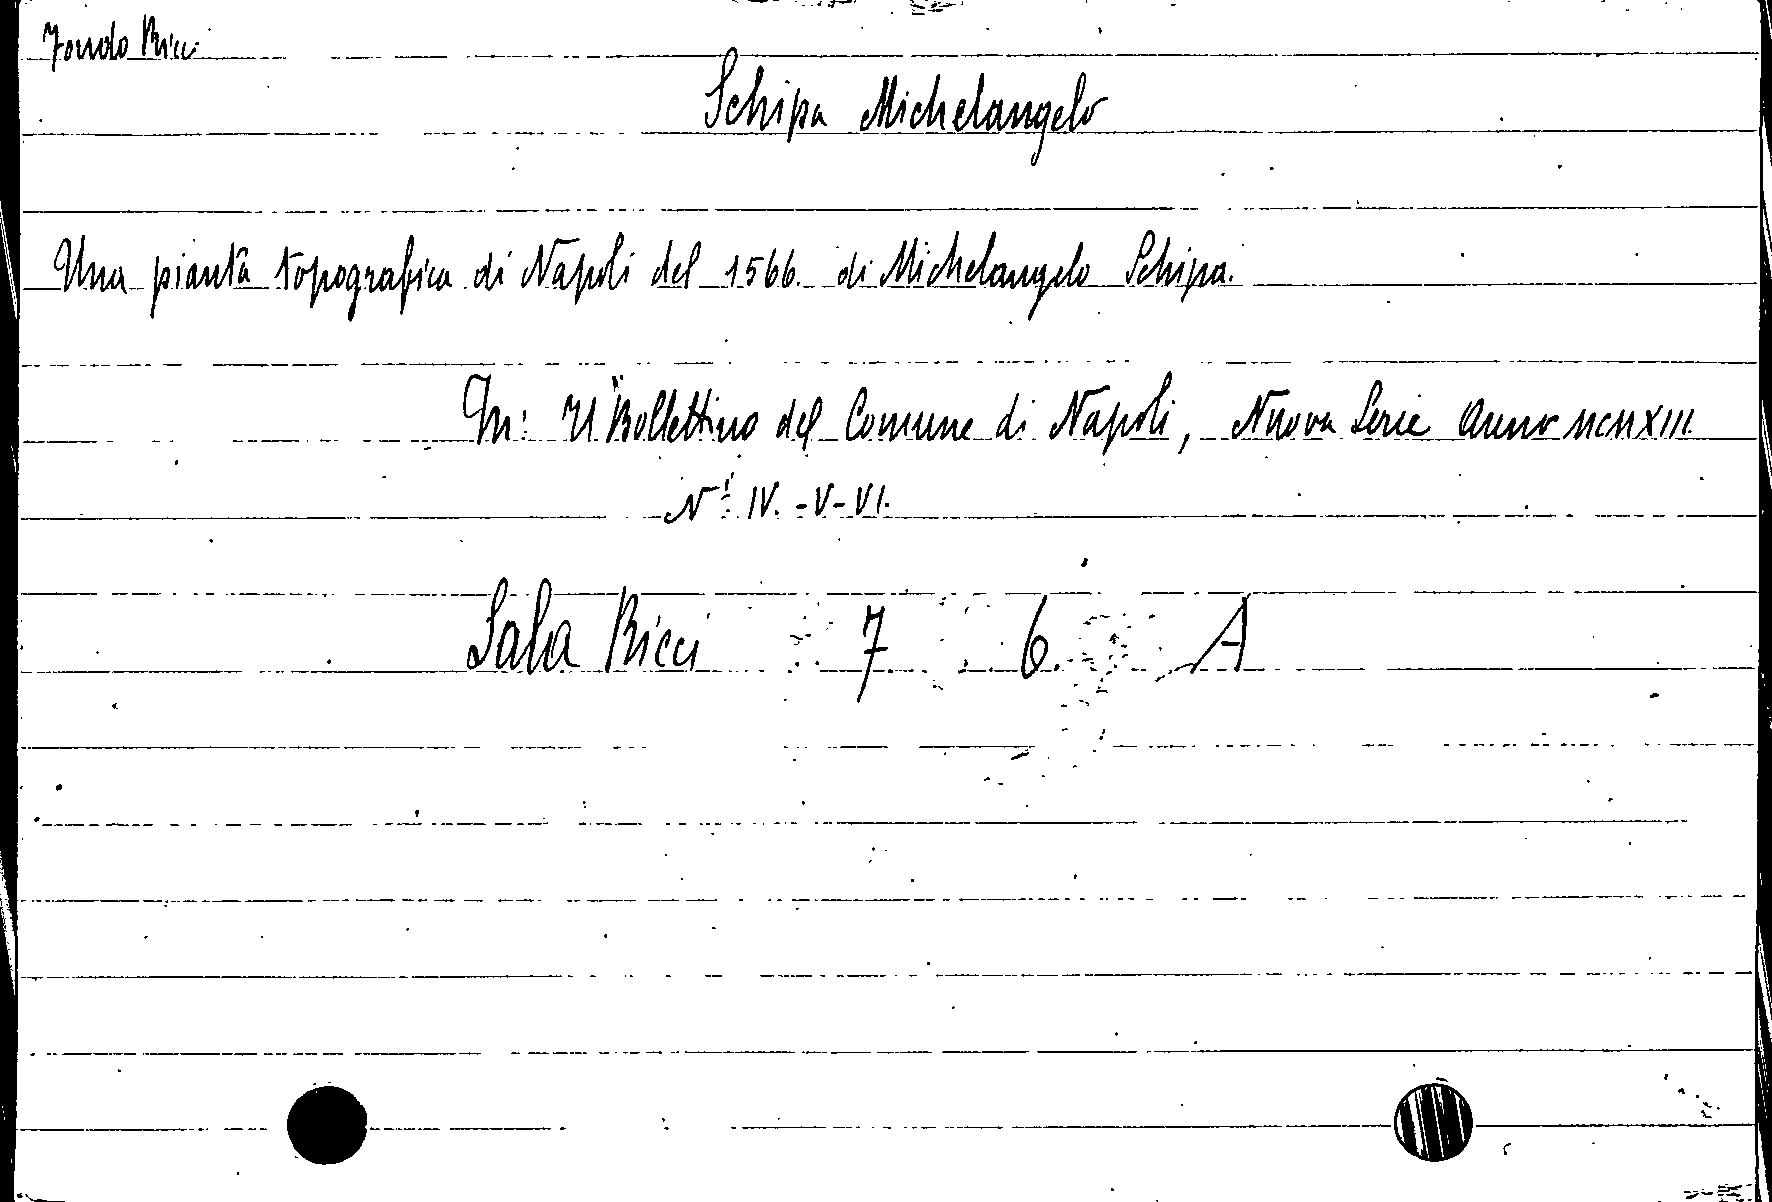 Fondo Ricci
Schipa Michelangelo
Una pianta topografica di Napoli del 1566. di Michelangelo Schipa.
In: Il "Bollettino del Comune di Napoli, Nuova Serie Anno MCMXIII.
N.i IV.-V-VI.
Sala Ricci 7 6. A